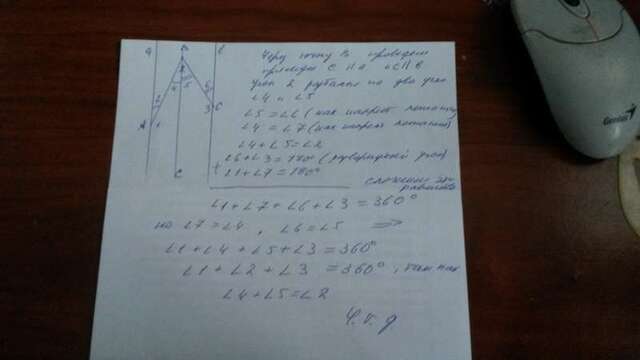 a
B
b
4 5
6
2
7
3 C
A 1
c
Через точку B проведем
прямую c || a и c || b
Угол 2 разбит на два угла
∠4 и ∠5
∠5 = ∠6 (как накрест лежащие)
∠4 = ∠7 (как накрест лежащие)
∠4 + ∠5 = ∠2
∠6 + ∠3 = 180° (развернутый угол)
∠1 + ∠7 = 180°
сложим эти
равенства
∠1 + ∠7 + ∠6 + ∠3 = 360°
но ∠7 = ∠4, ∠6 = ∠5 =>
∠1 + ∠4 + ∠5 + ∠3 = 360°
∠1 + ∠2 + ∠3 = 360°, так как
∠4 + ∠5 = ∠2
Ч.т.д
Genius